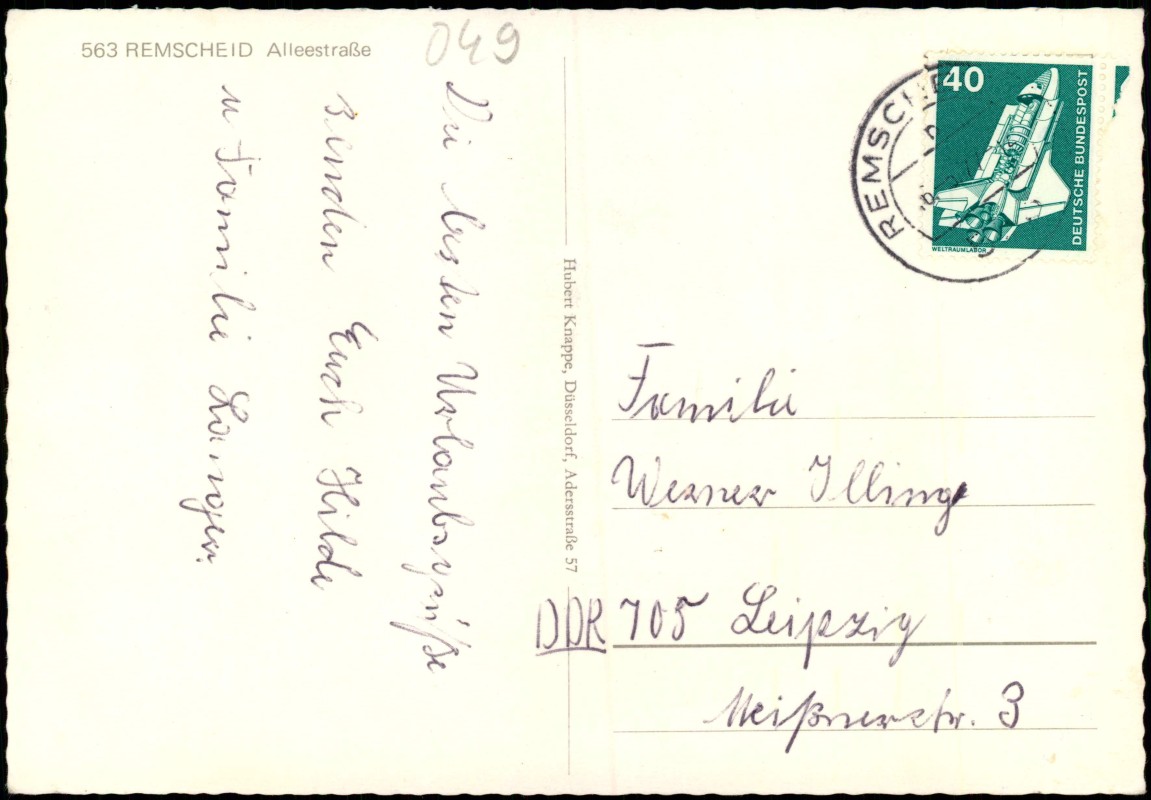 563 REMSCHEID Alleestraße
049
Die besten Urlaubsgrüße
senden Euch Hilde
u Familie Langer.
Hubert Knappe, Düsseldorf, Adersstraße 57
REMSCHEID
40
DEUTSCHE BUNDESPOST
WELTRAUMLABOR
Familie
Werner Illing
DDR 705 Leipzig
Meißnerstr. 3